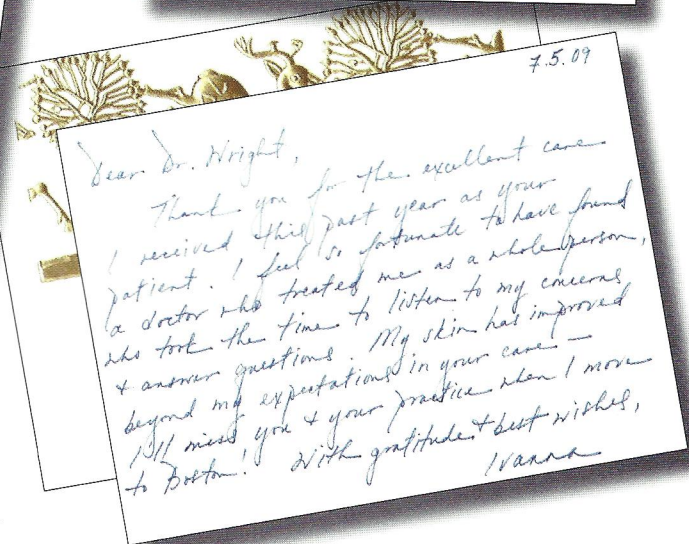 7.5.09
Dear Dr. Wright,
Thank you for the excellent care
I received this past year as your
patient. I feel so fortunate to have found
a doctor who treated me as a whole person,
who took the time to listen to my concerns
& answer questions. My skin has improved
beyond my expectations in your care –
I'll miss you & your practice when I move
to Boston! With gratitude & best wishes,
Ivanna